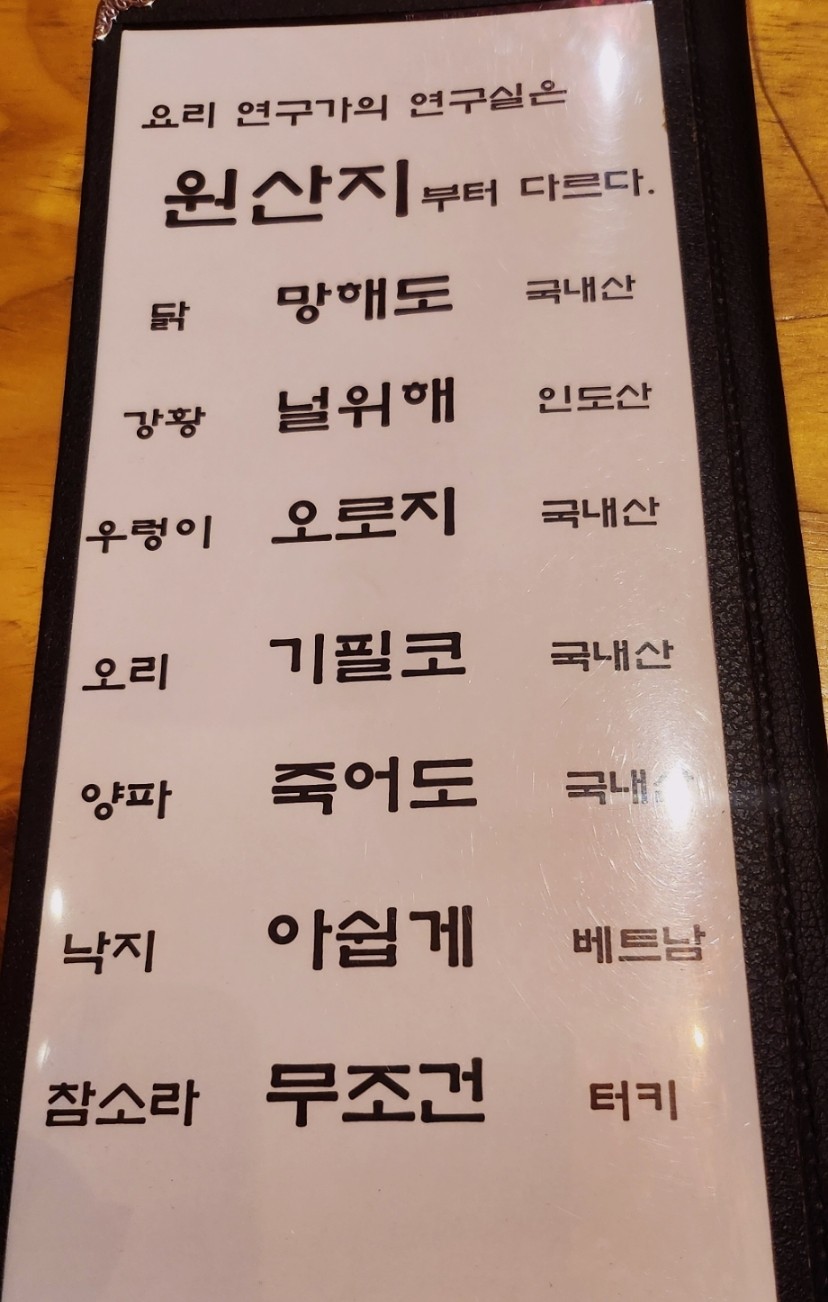 요리 연구가의 연구실은
원산지부터 다르다.
닭 망해도 국내산
강황 널위해 인도산
우렁이 오로지 국내산
오리 기필코 국내산
양파 죽어도 국내산
낙지 아쉽게 베트남
참소라 무조건 터키